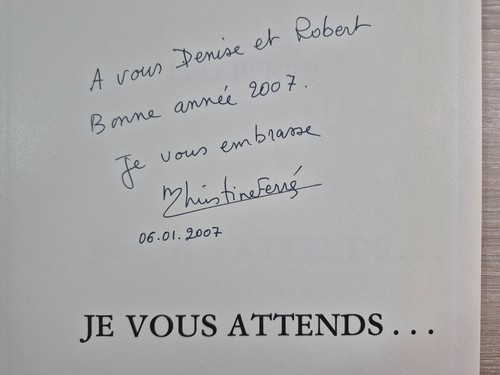 A vous Denise et Robert
Bonne année 2007.
Je vous embrasse
Christine Ferré
06.01.2007
JE VOUS ATTENDS...